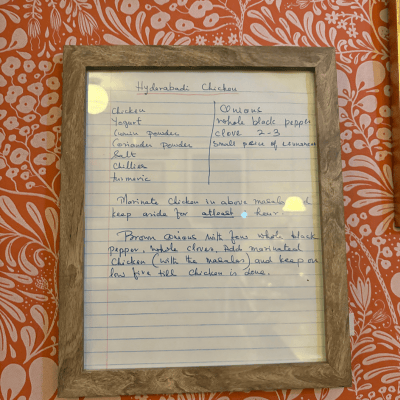 Hyderabadi Chicken
Chicken
Yogurt
Cumin powder
Coriander Powder
Salt
Chillies
turmeric
Onions
whole black pepper
clove 2-3
Small piece of cinnamon
Marinate Chicken in above masala and
keep aside for atleast hour.
Brown onions with few whole black
pepper, whole cloves. Add marinated
Chicken (with the masalas) and keep on
low fire till chicken is done.